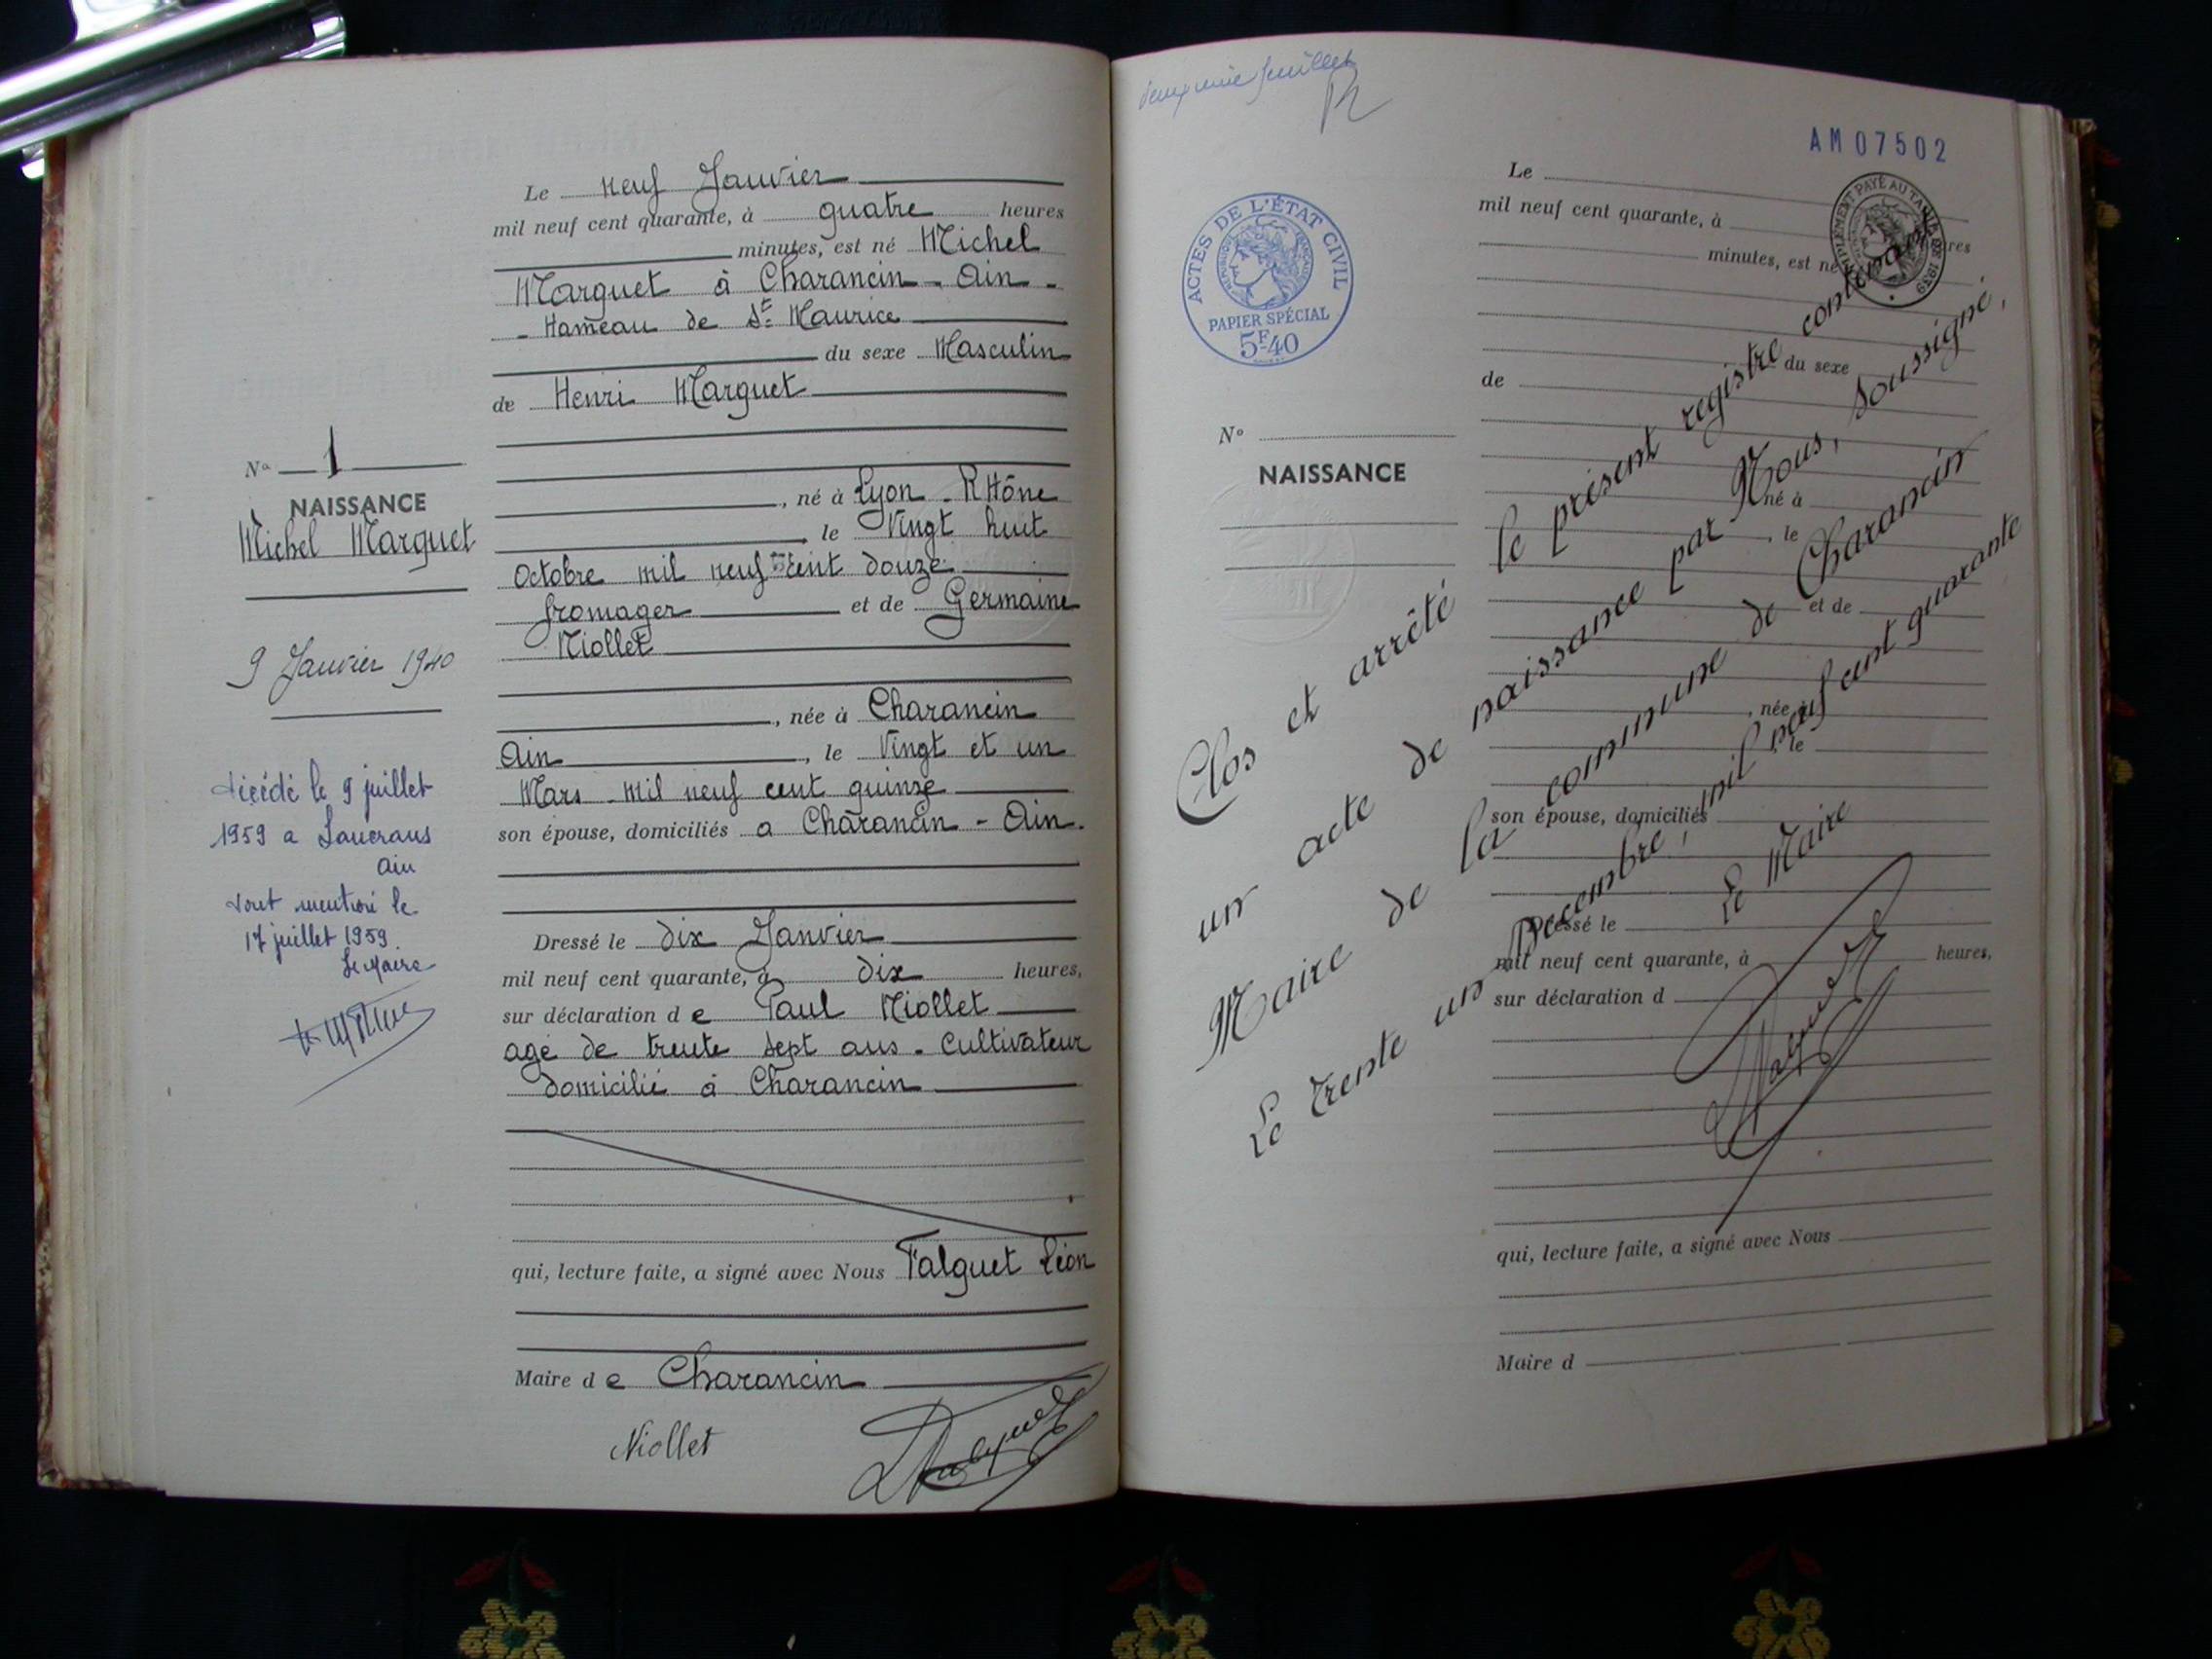 Le neuf Janvier
mil neuf cent quarante, à quatre heures
minutes, est né Michel
Marguet à Charancin - Ain -
- Hameau de St Maurice
du sexe Masculin
de Henri Marguet
, né à Lyon - Rhône
, le Vingt huit
Octobre mil neuf cent douze
fromager et de Germaine
Niollet
, née à Charancin
Ain , le Vingt et un
Mars - mil neuf cent quinze
son épouse, domiciliés a Charancin - Ain.
Dressé le dix Janvier
mil neuf cent quarante, à dix heures,
sur déclaration d e Paul Niollet
agé de trente sept ans - Cultivateur
domicilié à Charancin
qui, lecture faite, a signé avec Nous Falguet Léon
Maire d e Charancin
Niollet
No 1
NAISSANCE
Michel Marguet
9 Janvier 1940
décédé le 9 juillet
1959 a
Ain
dont mention le
17 juillet 1959.
Le Maire
deuxième feuillet
AM 07502
ACTES DE L'ÉTAT CIVIL
RÉPUBLIQUE FRANÇAISE
PAPIER SPÉCIAL
5F.40
PAYÉ AU
1939
No
NAISSANCE
Le
mil neuf cent quarante, à
minutes, est né
du sexe
de
né à
, le
et de
, née à
, le
son épouse, domiciliés
Dressé le
mil neuf cent quarante, à heures,
sur déclaration d
qui, lecture faite, a signé avec Nous
Maire d
Clos et arrêté le présent registre contenant
un acte de naissance par Nous, soussigné,
Maire de la commune de Charancin
Le trente un Décembre, mil neuf cent quarante
Le Maire